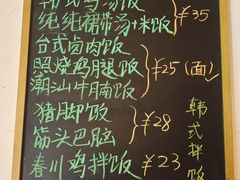 韩式鸡汤饭
纯纯裙带汤+米饭 ¥35
台式卤肉饭
照烧鸡腿饭 ¥25(面)
潮汕牛腩饭
猪脚饭 ¥28
筋头巴脑
春川鸡拌饭 ¥23
韩式拌饭